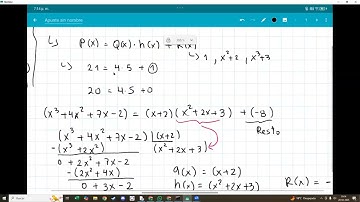 Apunte sin nombre
↳ P(x) = Q(x)·h(x) + R(x)
↳ 1, x²+2, x³+3
↳ 21 = 4·5 + ①
20 = 4·5 + 0
(x³+4x²+7x-2) = (x+2)(x²+2x+3) + (-8)
Resto
(x³+4x²+7x-2) (x+2)
-(x³+2x²) (x²+2x+3)
0 + 2x²+7x-2
-(2x²+4x)
0 + 3x-2
q(x) = (x+2)
h(x) = (x²+2x+3)
R(x) = -